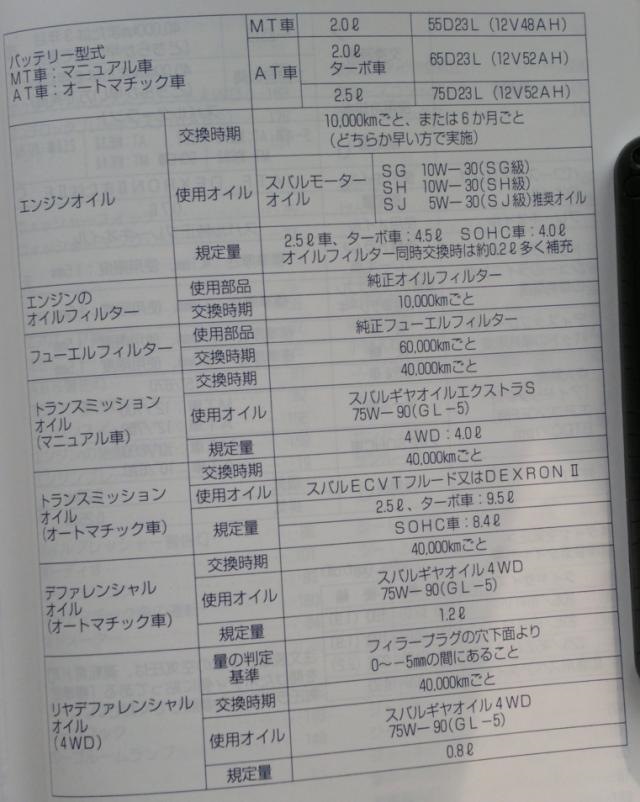 バッテリー型式
MT車：マニュアル車
AT車：オートマチック車
MT車 2.0ℓ 55D23L（12V48AH）
AT車 2.0ℓ ターボ車 65D23L（12V52AH）
2.5ℓ 75D23L（12V52AH）
エンジンオイル
交換時期 10,000kmごと、または6か月ごと
（どちらか早い方で実施）
使用オイル スバルモーター
オイル
SG 10W−30(SG級)
SH 10W−30(SH級)
SJ 5W−30(SJ級)推奨オイル
規定量 2.5ℓ車、ターボ車：4.5ℓ SOHC車：4.0ℓ
オイルフィルター同時交換時は約0.2ℓ多く補充
エンジンの
オイルフィルター
使用部品 純正オイルフィルター
交換時期 10,000kmごと
フューエルフィルター
使用部品 純正フューエルフィルター
交換時期 60,000kmごと
トランスミッション
オイル
(マニュアル車)
交換時期 40,000kmごと
使用オイル スバルギヤオイルエクストラS
75W−90(GL−5)
規定量 4WD：4.0ℓ
トランスミッション
オイル
(オートマチック車)
交換時期 40,000kmごと
使用オイル スバルECVTフルード又はDEXRONⅡ
規定量 2.5ℓ、ターボ車：9.5ℓ
SOHC車：8.4ℓ
デファレンシャル
オイル
(オートマチック車)
交換時期 40,000kmごと
使用オイル スバルギヤオイル4WD
75W−90(GL−5)
規定量 1.2ℓ
リヤデファレンシャル
オイル
(4WD)
量の判定
基準
フィラープラグの穴下面より
0～−5mmの間にあること
交換時期 40,000kmごと
使用オイル スバルギヤオイル4WD
75W−90(GL−5)
規定量 0.8ℓ